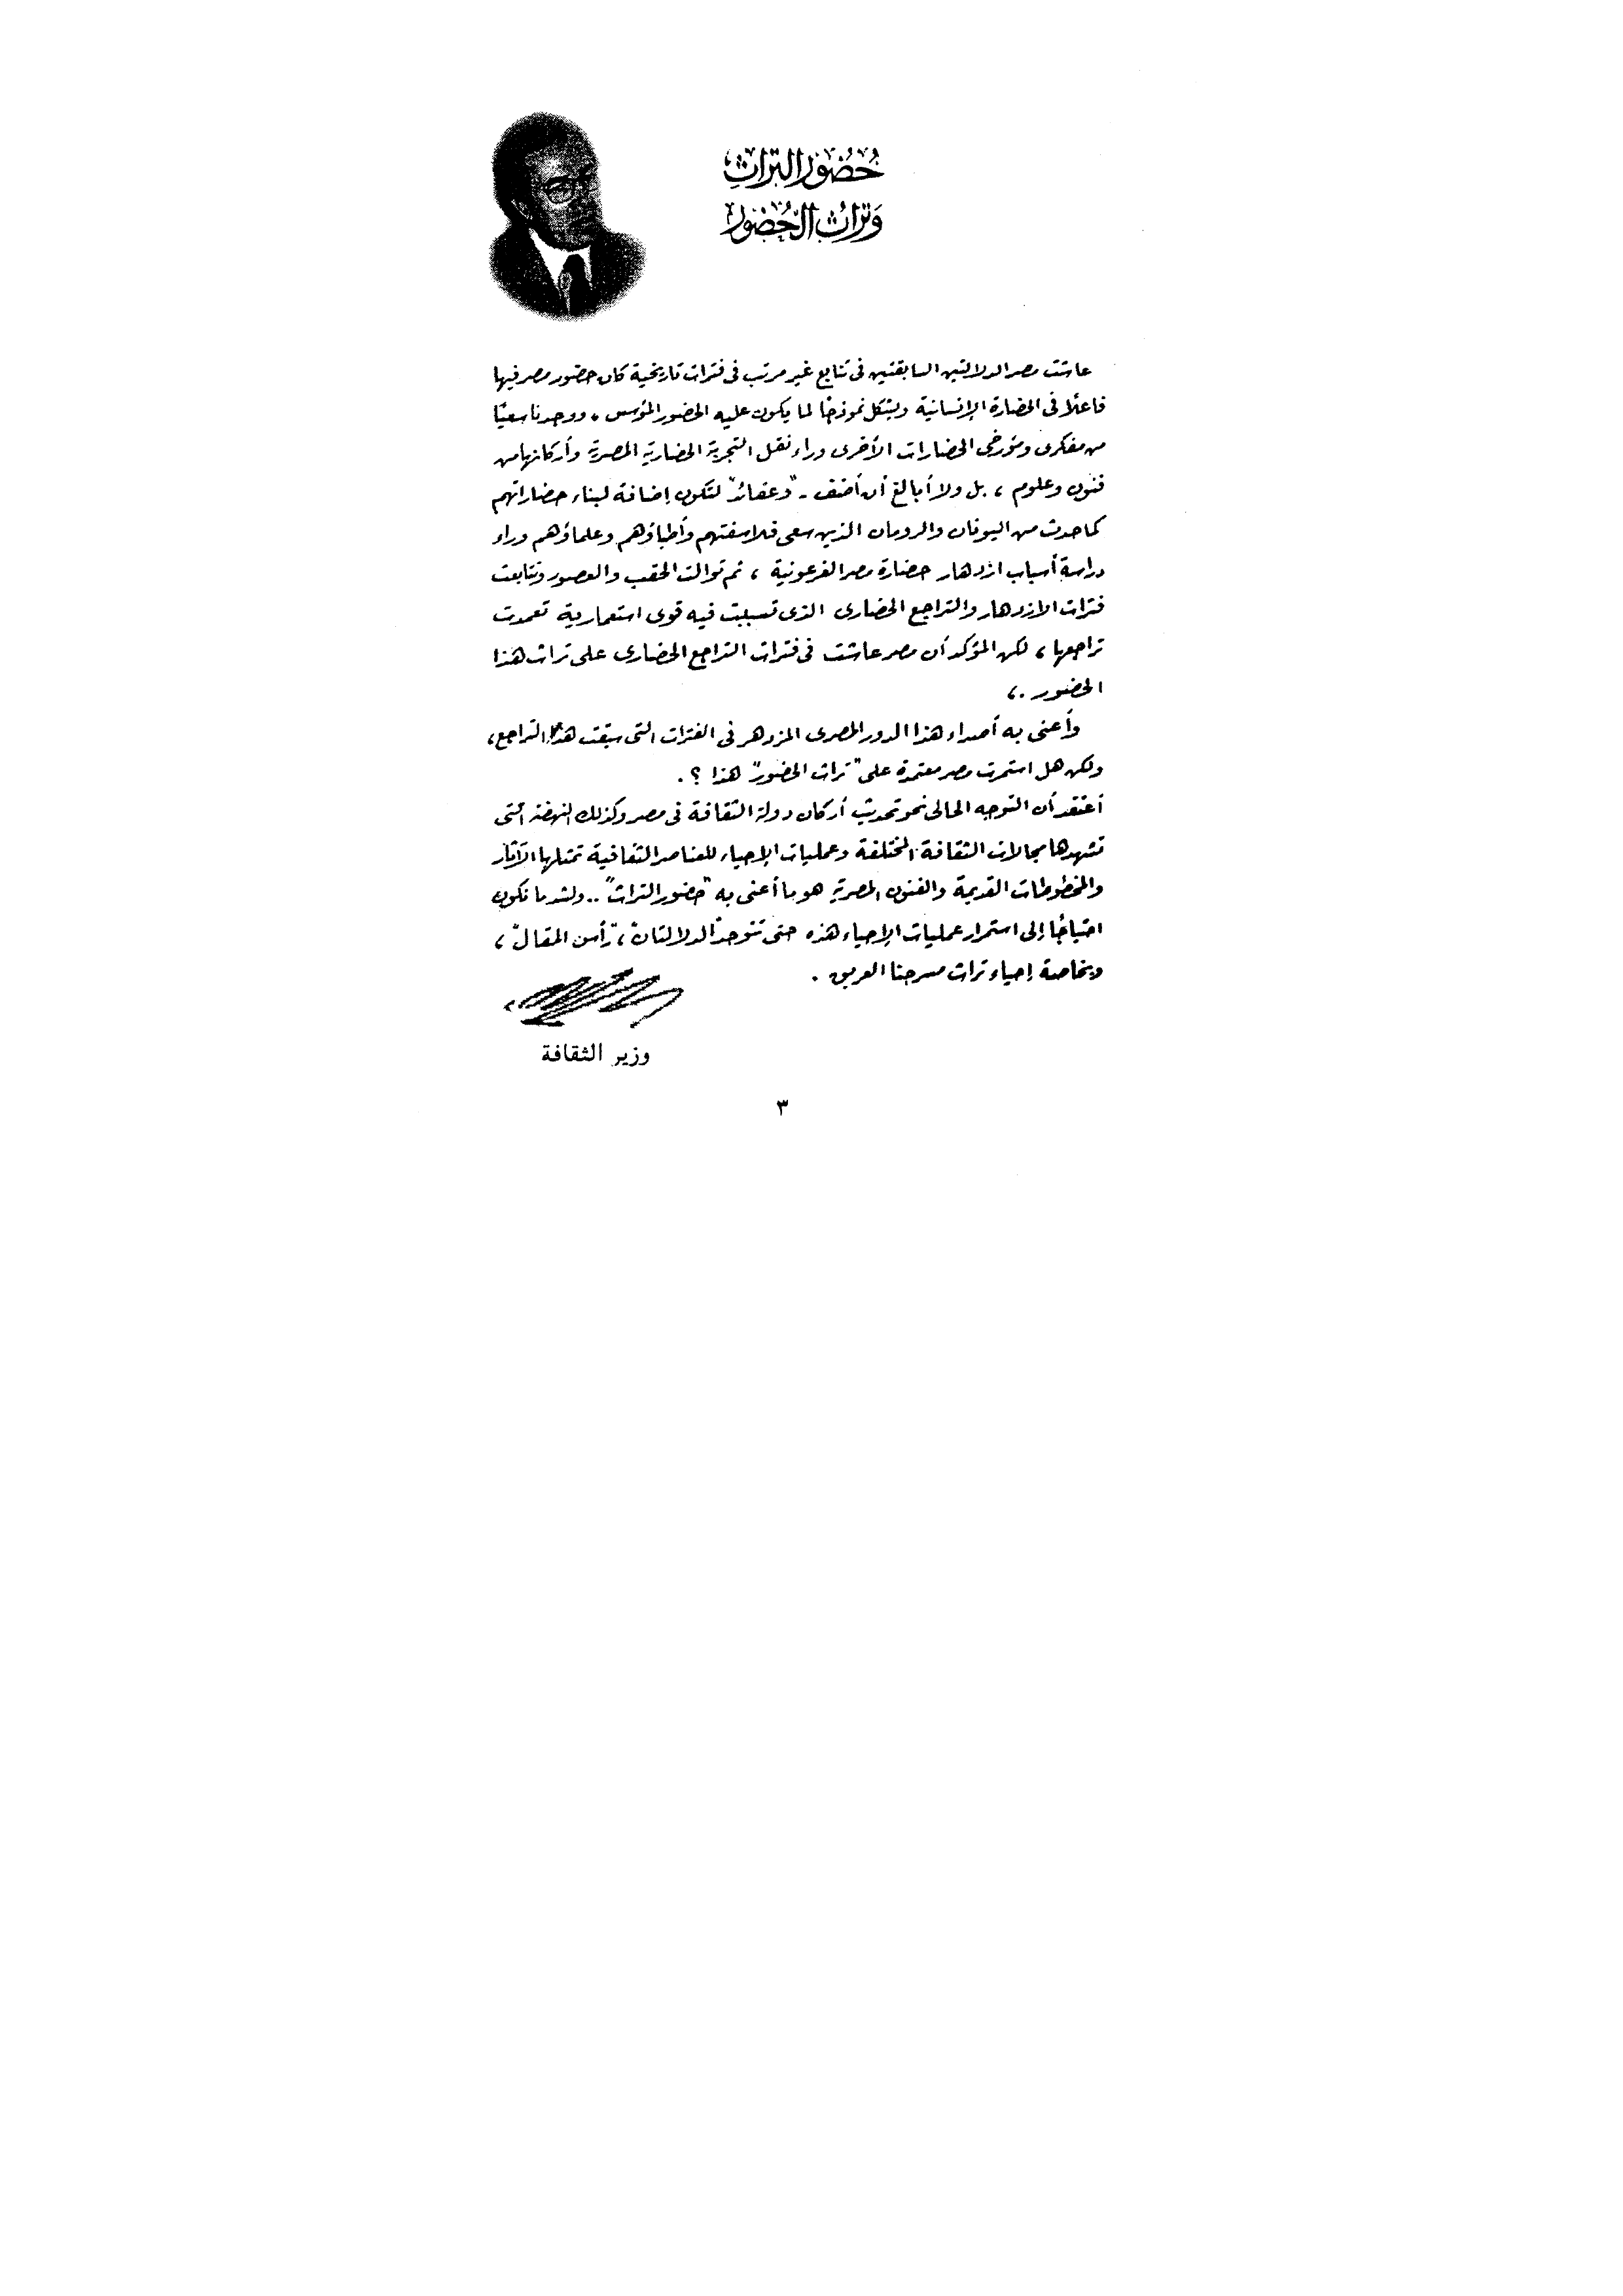 حُضُور التراثِ
وَتراثُ الحُضُور
عاشت مصر الدلالتين السابقتين فى تتابع غير مرتب فى فترات تاريخية كان حضور مصر فيها
فاعلًا فى الحضارة الإنسانية ويشكل نموذجًا لما يكون عليه الحضور المؤسس . ووجدنا سعيًا
من مفكرى ومؤرخى الحضارات الأخرى وراء نقل التجربة الحضارية المصرية وأركانها من
فنون وعلوم ، بل ولا أبالغ أن أضف - "وعقائد" لتكون إضافة لبناء حضاراتهم
كما حدث من اليونان والرومان الذين سعى فلاسفتهم وأطباؤهم وعلماؤهم وراء
دراسة أسباب ازدهار حضارة مصر الفرعونية ، ثم توالت الحقب والعصور وتتابعت
فترات الازدهار والتراجع الحضارى الذى تسببت فيه قوى استعمارية تعمدت
تراجعها ، لكن المؤكد أن مصر عاشت فى فترات التراجع الحضارى على تراث هذا
الحضور .،
وأعنى به أصداء هذا الدور المصرى المزدهر فى الفترات التى سبقت هذا التراجع ،
ولكن هل استمرت مصر معتمدة على "تراث الحضور" هذا ؟ .
أعتقد أن التوجه الحالى نحو تحديث أركان دولة الثقافة فى مصر وكذلك النهضة التى
تشهدها مجالات الثقافة المختلفة وعمليات الإحياء للعناصر الثقافية تمثلها الآثار
والمخطوطات القديمة والفنون المصرية هو ما أعنى به "حضور التراث" .. ولشد ما نكون
احتياجًا إلى استمرار عمليات الإحياء هذه حتى تتوحد "الدلالتان" ، "رأس المقال" ،
وبخاصة إحياء تراث مسرحنا العريق .
وزير الثقافة
٣